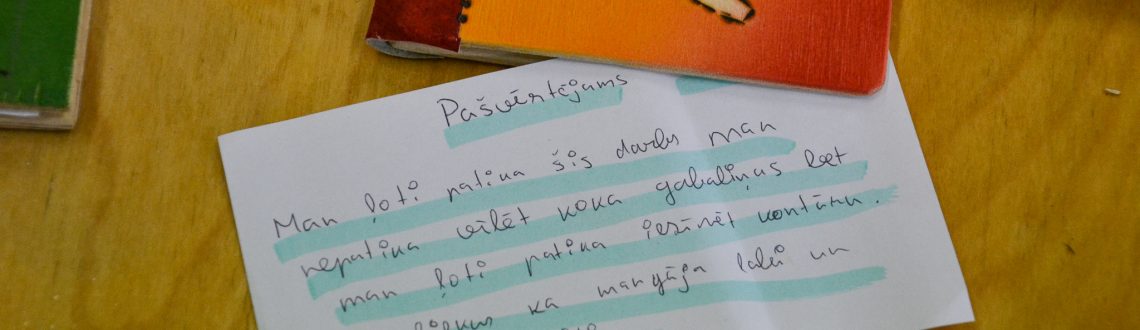 Pašvērtējums
Man ļoti patika šis darbs man
nepatika vīlēt koka gabaliņus bet
man ļoti patika iezīmēt kontūru.
ka man gāja labi un